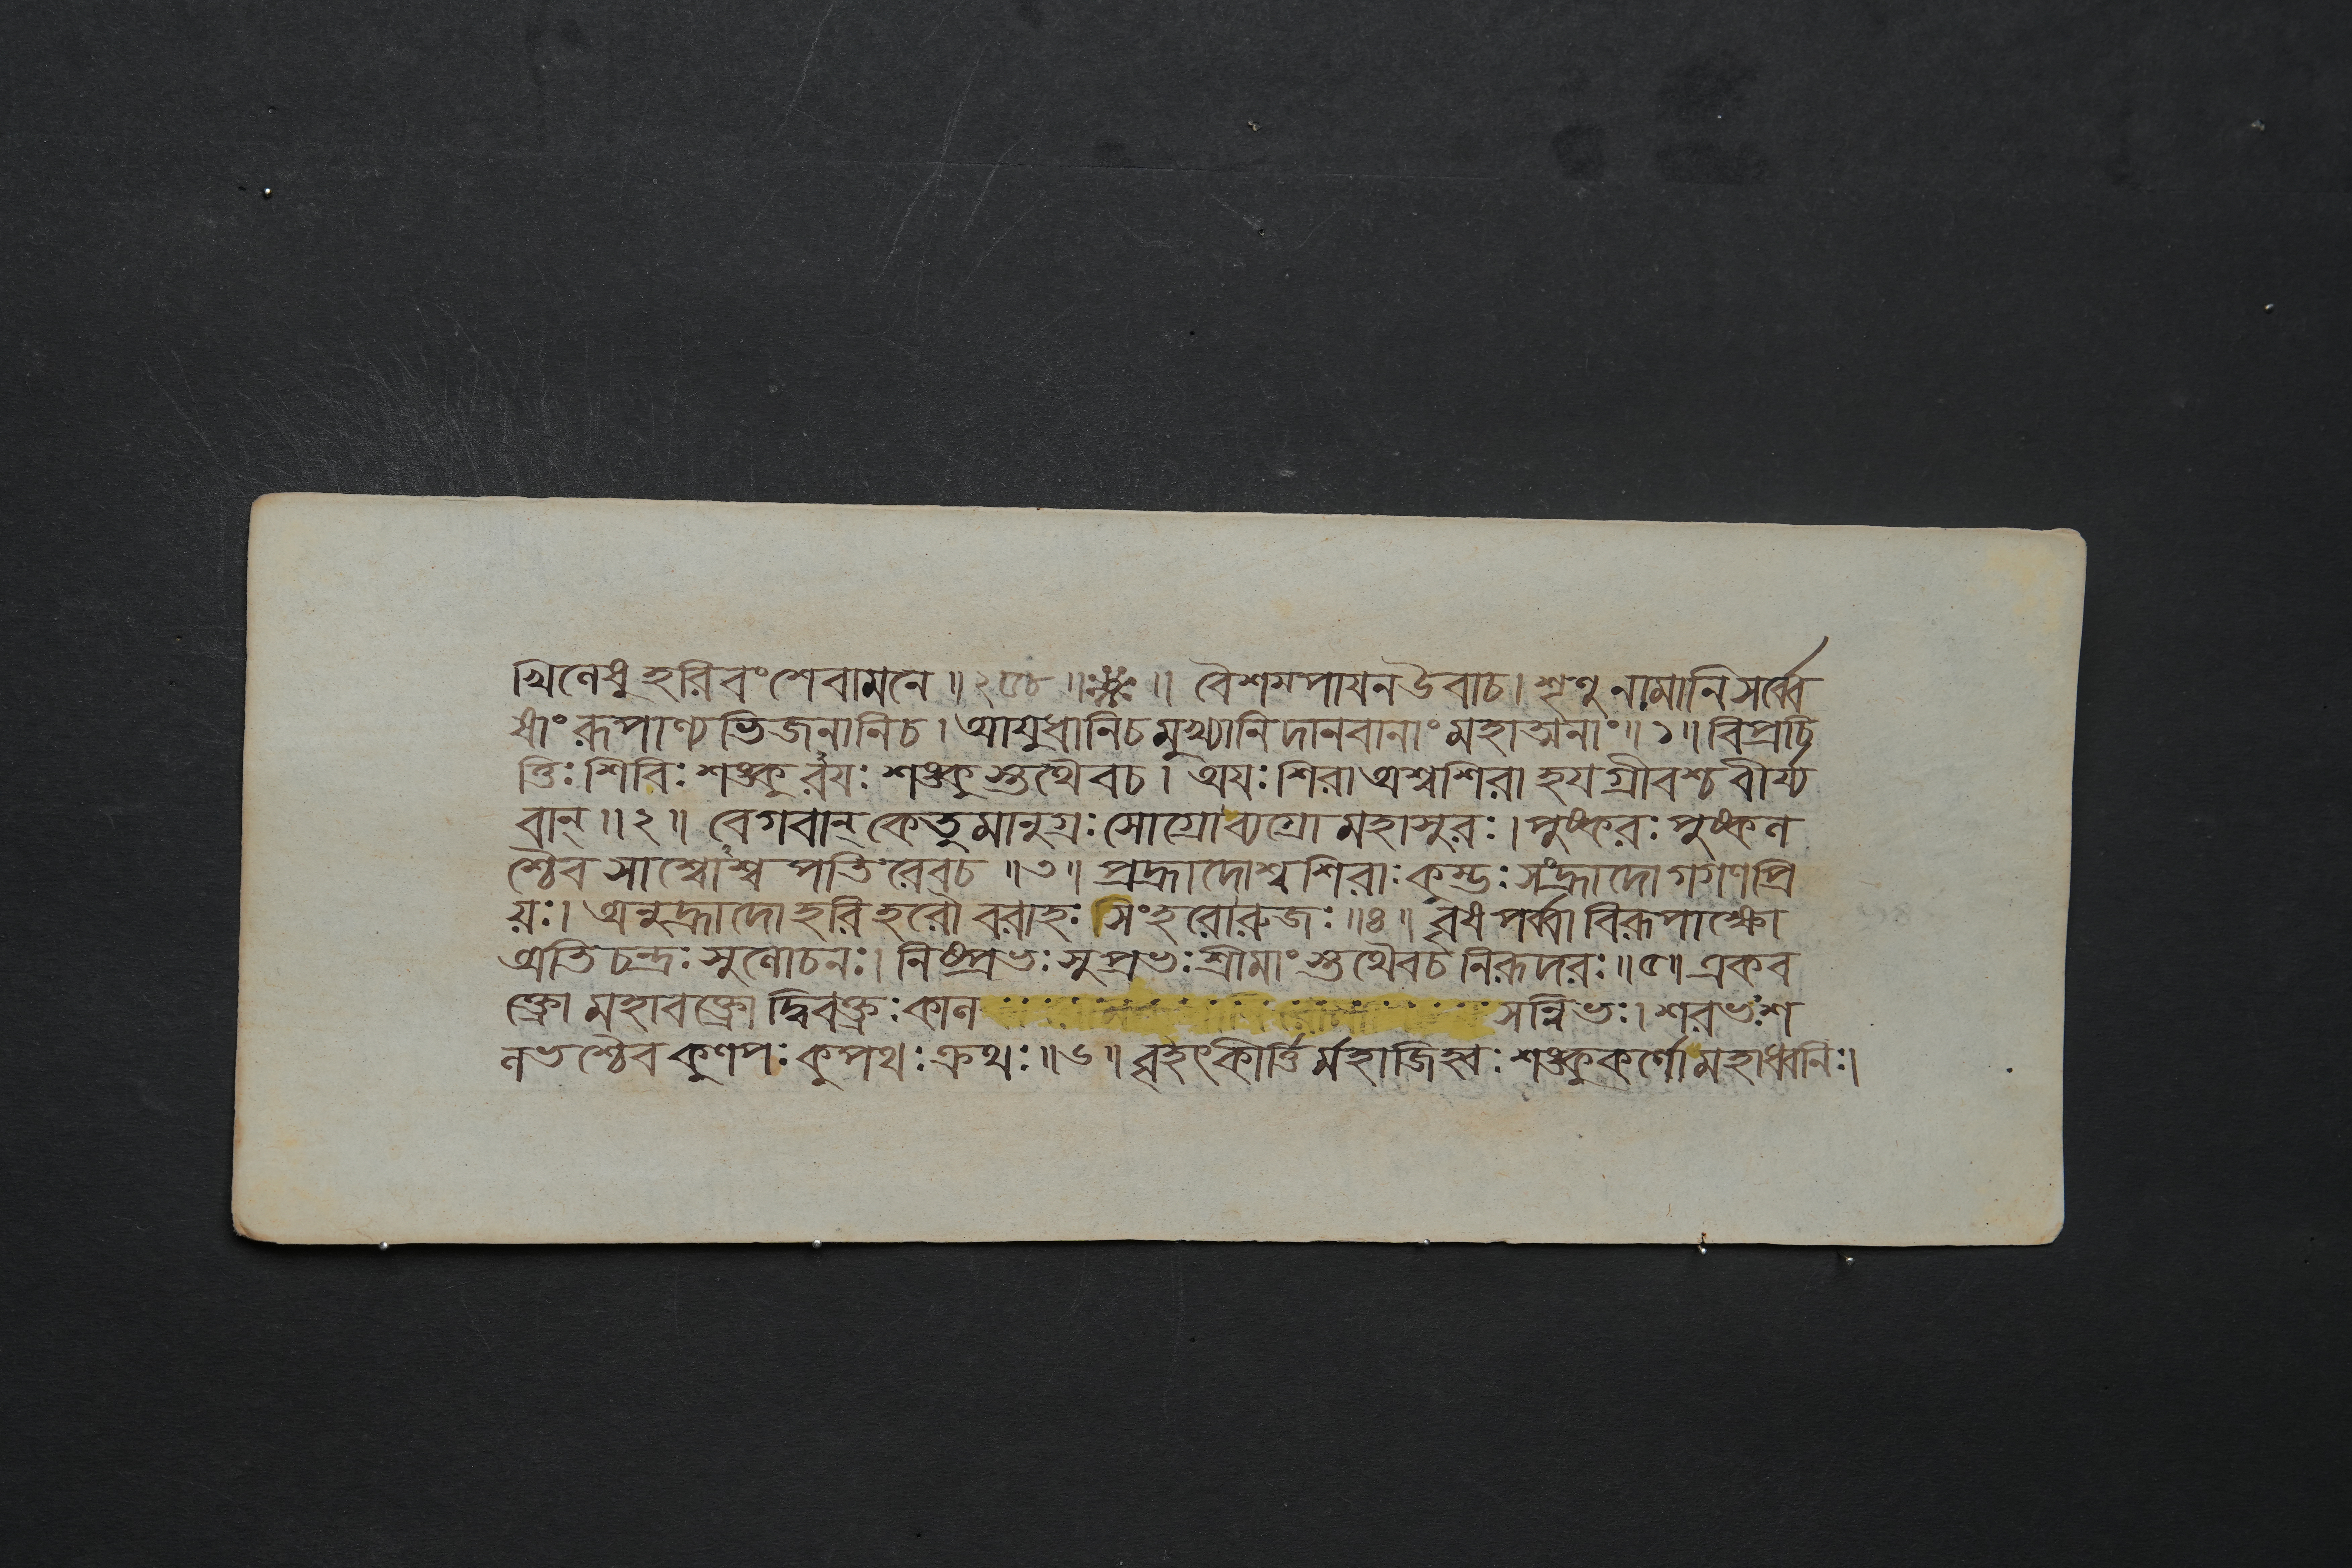 খিলেষু হরিবংশে বামনে ॥ ২৫৮ ॥ ॥ বৈশম্পায়ন উবাচ । শৃণু নামানি সর্ব্বে
ষাং রূপাণ্যভিজনানি চ । আয়ুধানি চ মুখ্যানি দানবানাং মহাত্মনাং ॥ ১ ॥ বিপ্রচি
ত্তিঃ শিবিঃ শঙ্কুরয়ঃ শঙ্কুস্তথৈব চ । অয়ঃশিরা অশ্বশিরা হয়গ্রীবশ্চ বীর্য্য
বান্ ॥ ২ ॥ বেগবান্ কেতুমানুগ্রঃ সোগ্রো ব্যগ্রো মহাসুরঃ । পুষ্করঃ পুষ্কল
শ্চৈব সাশ্বোশ্বপতিরেব চ ॥ ৩ ॥ প্রহ্লাদোশ্বশিরাঃ কুম্ভঃ সংহ্লাদো গগণপ্রি
য়ঃ । অনুহ্লাদো হরিহরৌ বরাহঃ সিংহরোরুজঃ ॥ ৪ ॥ বৃষপর্ব্বা বিরূপাক্ষো
অতিচন্দ্রঃ সুলোচনঃ । নিষ্প্রভঃ সুপ্রভঃ শ্রীমাংস্তথৈব চ নিরূদরঃ ॥ ৫ ॥ একব
ক্ত্রো মহাবক্ত্রো দ্বিবক্ত্রঃ কাল সন্নিভঃ । শরভঃ শ
লভশ্চৈব কুণপঃ কুপথঃ ক্রথঃ ॥ ৬ ॥ বৃহৎকীর্ত্তির্মহাজিহ্বঃ শঙ্কুকর্ণো মহাধ্বনিঃ ।